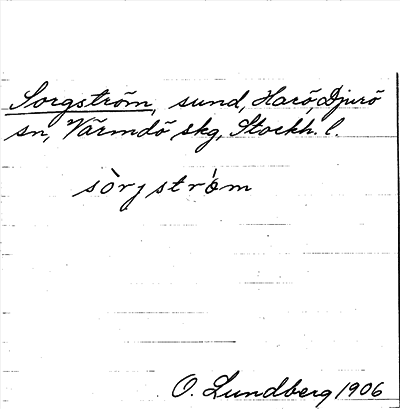 Sorgström, sund, Harö, Djurö
sn, Värmdö skg, Stockh. l.
sòrjstróm
O. Lundberg 1906